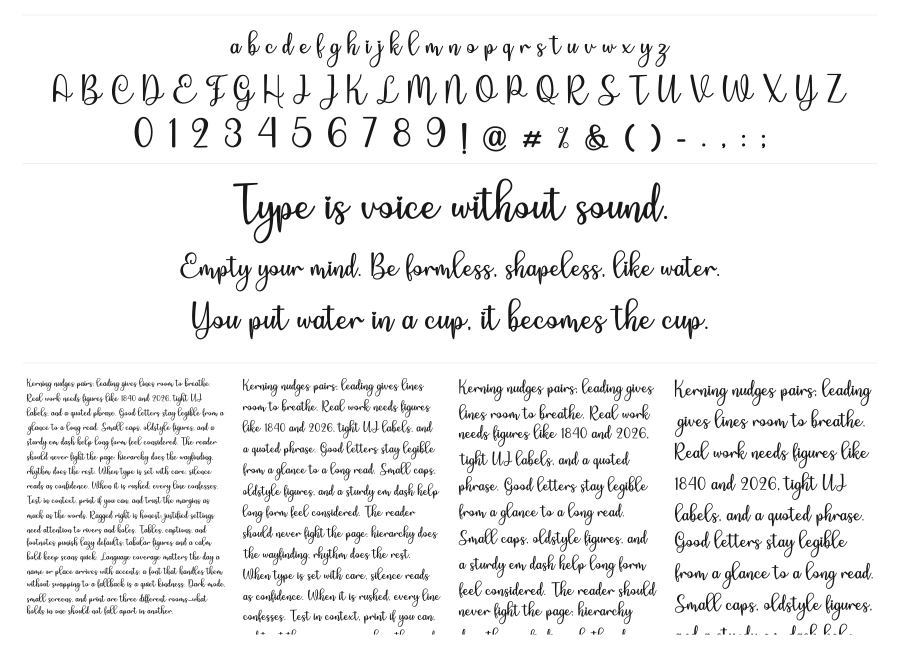 a b c d e f g h i j k l m n o p q r s t u v w x y z
A B C D E F G H I J K L M N O P Q R S T U V W X Y Z
0 1 2 3 4 5 6 7 8 9 ! @ # % & ( ) - . , : ;
Type is voice without sound.
Empty your mind. Be formless, shapeless, like water.
You put water in a cup, it becomes the cup.
Kerning nudges pairs; leading gives lines room to breathe.
Real work needs figures like 1840 and 2026, tight UI
labels, and a quoted phrase. Good letters stay legible from a
glance to a long read. Small caps, oldstyle figures, and a
sturdy em dash help long form feel considered. The reader
should never fight the page; hierarchy does the wayfinding,
rhythm does the rest. When type is set with care, silence
reads as confidence. When it is rushed, every line confesses.
Test in context, print if you can, and trust the margins as
much as the words. Ragged right is honest; justified settings
need attention to rivers and holes. Tables, captions, and
footnotes punish lazy defaults; tabular figures and a calm
bold keep scans quick. Language coverage matters the day a
name or place arrives with accents; a font that handles them
without swapping to a fallback is a quiet kindness. Dark mode,
small screens, and print are three different rooms—what
holds in one should not fall apart in another.
Kerning nudges pairs; leading gives lines
room to breathe. Real work needs figures
like 1840 and 2026, tight UI labels, and
a quoted phrase. Good letters stay legible
from a glance to a long read. Small caps,
oldstyle figures, and a sturdy em dash help
long form feel considered. The reader
should never fight the page; hierarchy does
the wayfinding, rhythm does the rest.
When type is set with care, silence reads
as confidence. When it is rushed, every line
confesses. Test in context, print if you can,
Kerning nudges pairs; leading gives
lines room to breathe. Real work
needs figures like 1840 and 2026,
tight UI labels, and a quoted
phrase. Good letters stay legible
from a glance to a long read.
Small caps, oldstyle figures, and
a sturdy em dash help long form
feel considered. The reader should
never fight the page; hierarchy
Kerning nudges pairs; leading
gives lines room to breathe.
Real work needs figures like
1840 and 2026, tight UI
labels, and a quoted phrase.
Good letters stay legible
from a glance to a long read.
Small caps, oldstyle figures,